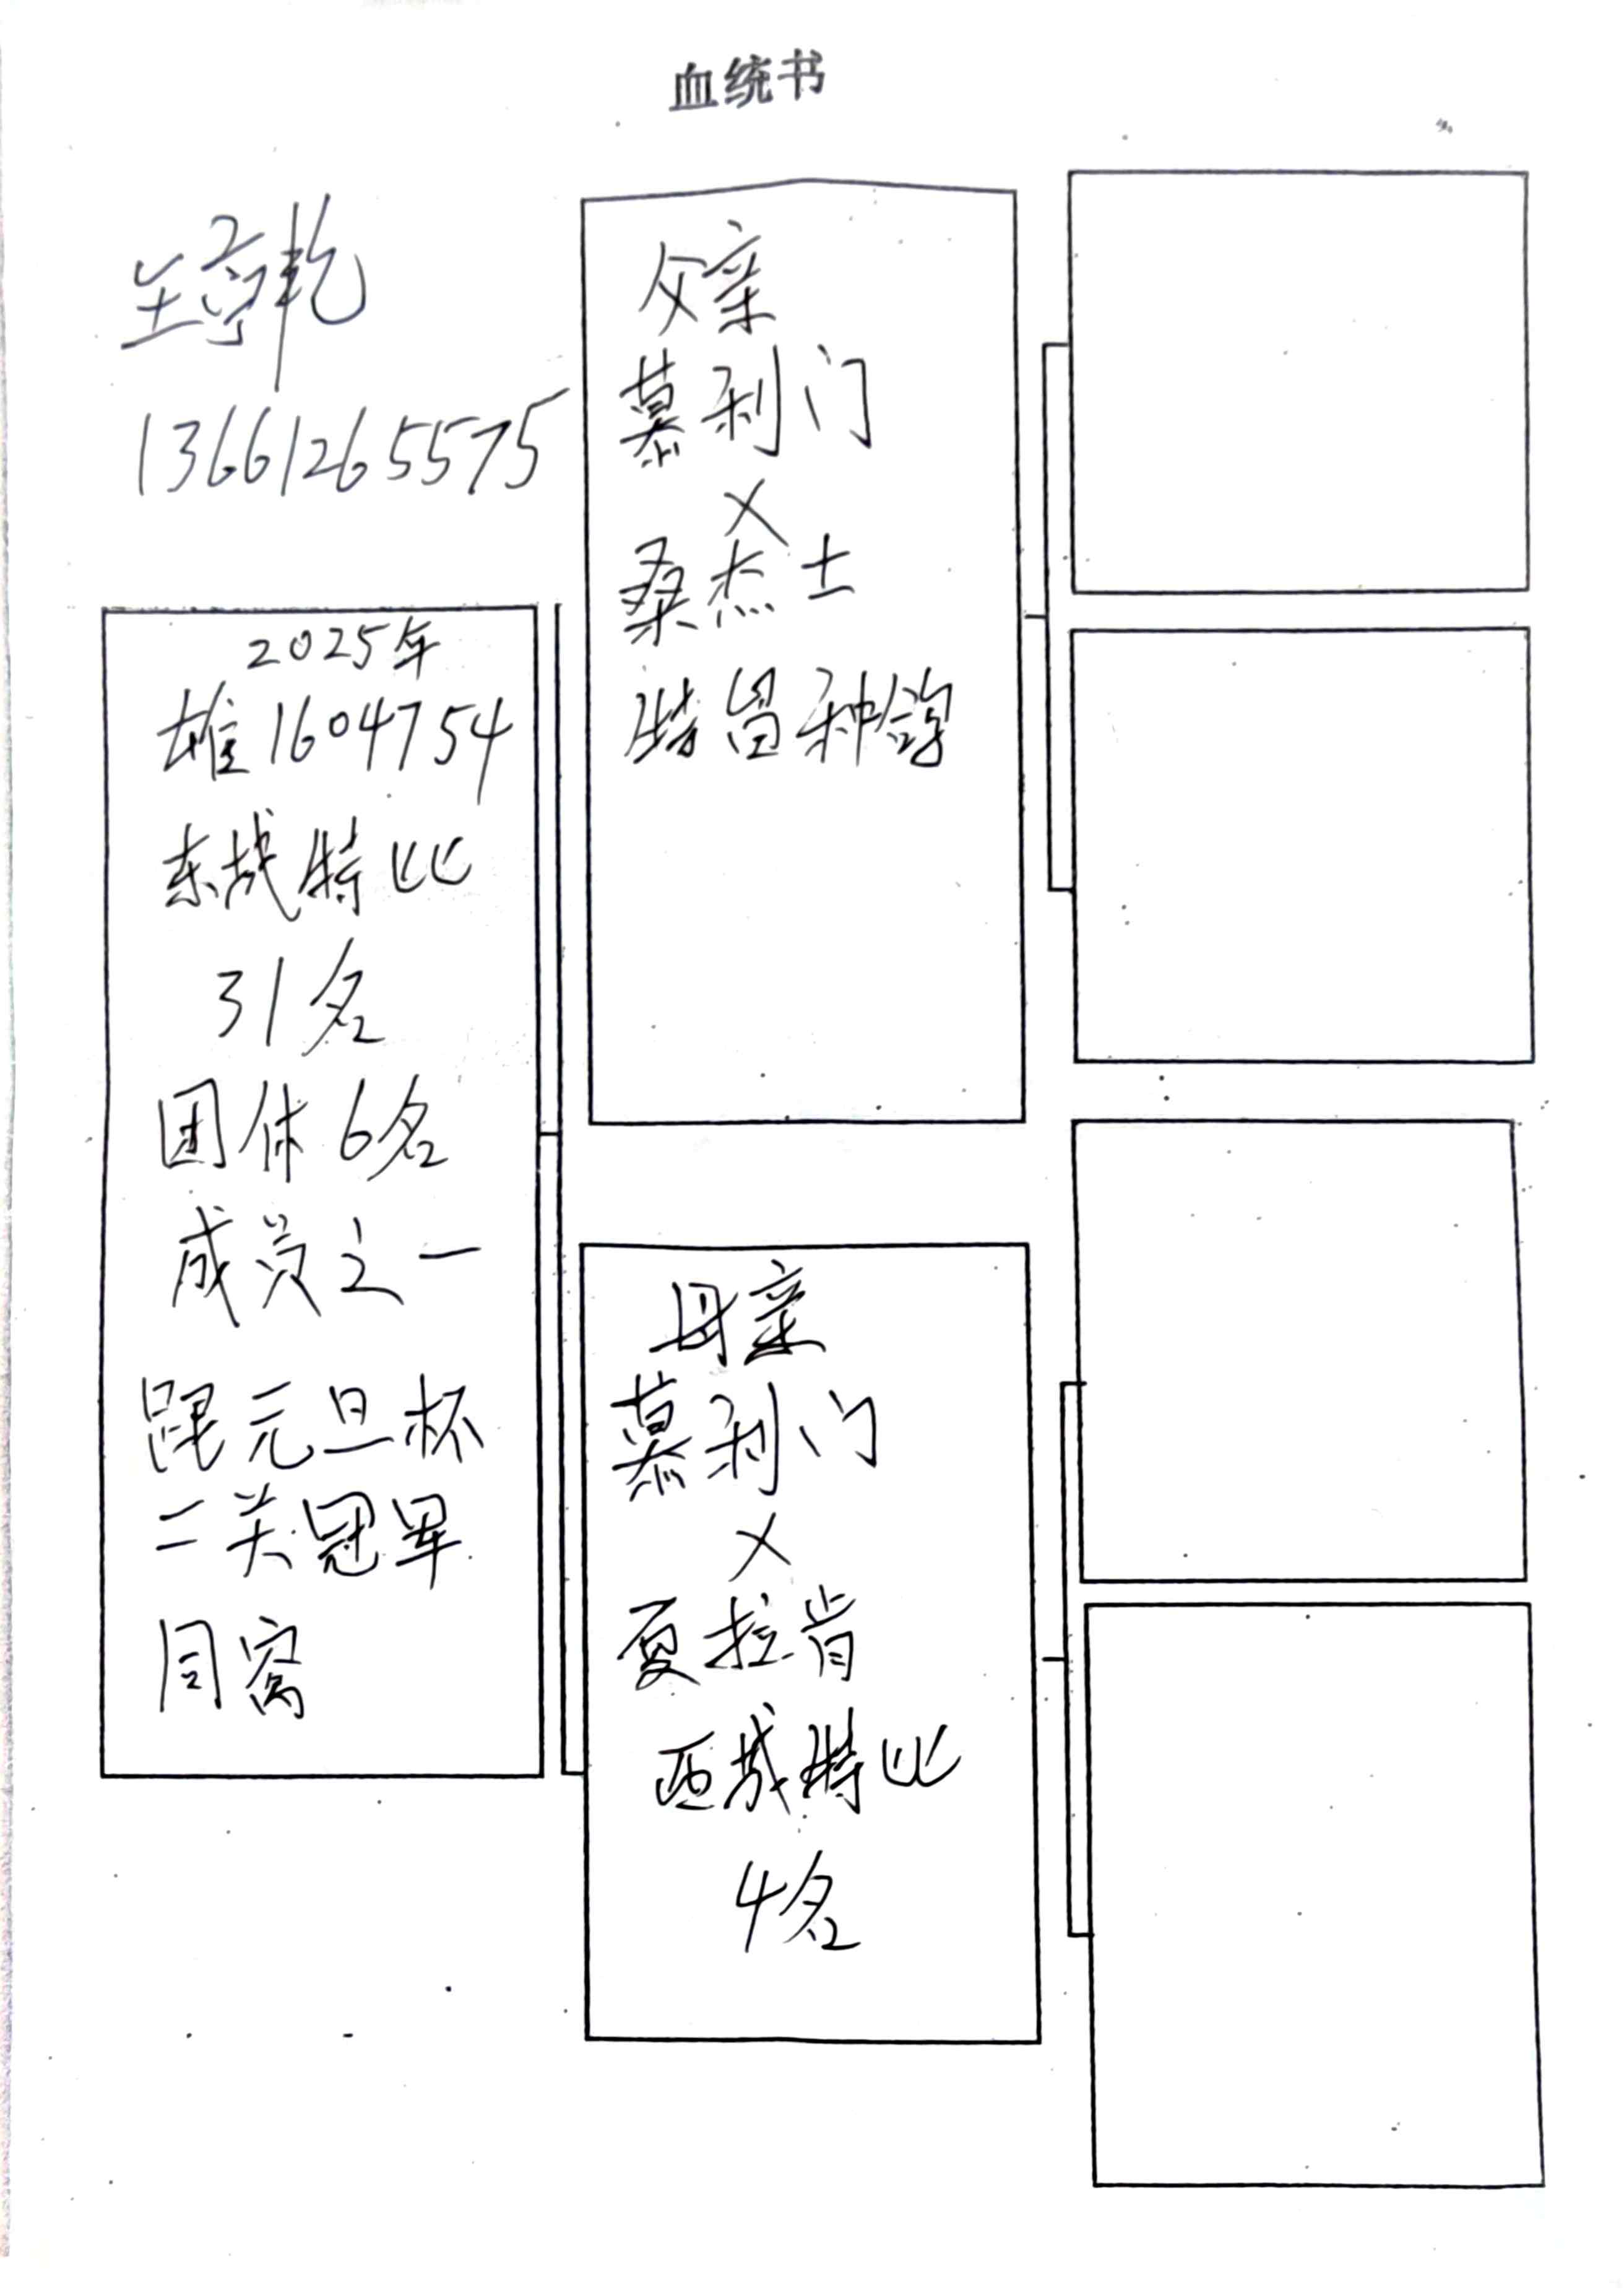 血统书
13661265575
2025年
雄1604754
东城特比
31名
团体6名
成员之一
跟元旦杯
二关冠军
同窝
父亲
慕利门
X
桑杰士
特留种鸽
母亲
慕利门
X
夏拉肯
西城特比
4名